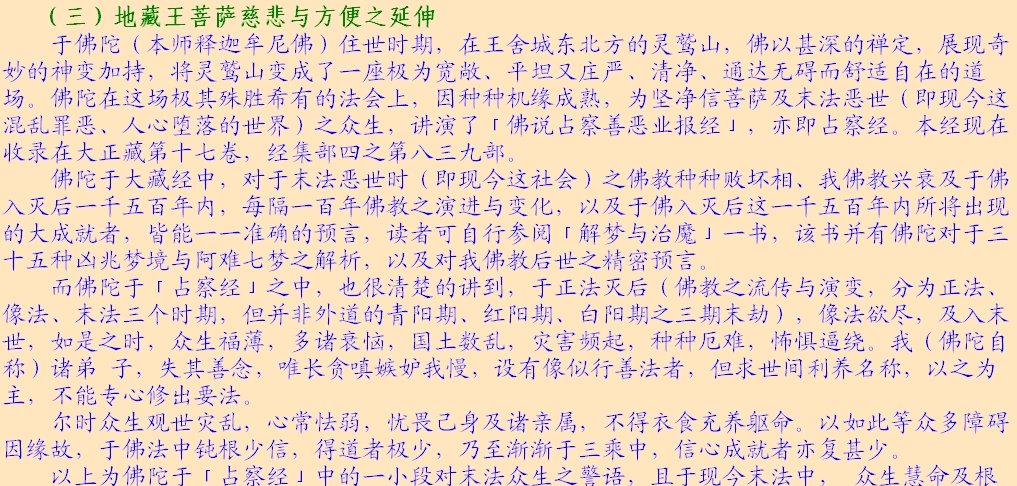 （三）地藏王菩萨慈悲与方便之延伸
于佛陀（本师释迦牟尼佛）住世时期，在王舍城东北方的灵鹫山，佛以甚深的禅定，展现奇
妙的神变加持，将灵鹫山变成了一座极为宽敞、平坦又庄严、清净、通达无碍而舒适自在的道
场。佛陀在这场极其殊胜希有的法会上，因种种机缘成熟，为坚净信菩萨及末法恶世（即现今这
混乱罪恶、人心堕落的世界）之众生，讲演了「佛说占察善恶业报经」，亦即占察经。本经现在
收录在大正藏第十七卷，经集部四之第八三九部。
佛陀于大藏经中，对于末法恶世时（即现今这社会）之佛教种种败坏相、我佛教兴衰及于佛
入灭后一千五百年内，每隔一百年佛教之演进与变化，以及于佛入灭后这一千五百年内所将出现
的大成就者，皆能一一准确的预言，读者可自行参阅「解梦与治魔」一书，该书并有佛陀对于三
十五种凶兆梦境与阿难七梦之解析，以及对我佛教后世之精密预言。
而佛陀于「占察经」之中，也很清楚的讲到，于正法灭后（佛教之流传与演变，分为正法、
像法、末法三个时期，但并非外道的青阳期、红阳期、白阳期之三期末劫），像法欲尽，及入末
世，如是之时，众生福薄，多诸衰恼，国土数乱，灾害频起，种种厄难，怖惧逼绕。我（佛陀自
称）诸弟 子，失其善念，唯长贪嗔嫉妒我慢，设有像似行善法者，但求世间利养名称，以之为
主，不能专心修出要法。
尔时众生观世灾乱，心常怯弱，忧畏己身及诸亲属，不得衣食充养躯命。以如此等众多障碍
因缘故，于佛法中钝根少信，得道者极少，乃至渐渐于三乘中，信心成就者亦复甚少。
以上为佛陀于「占察经」中的一小段对末法众生之警语，且于现今末法中， 众生慧命及根